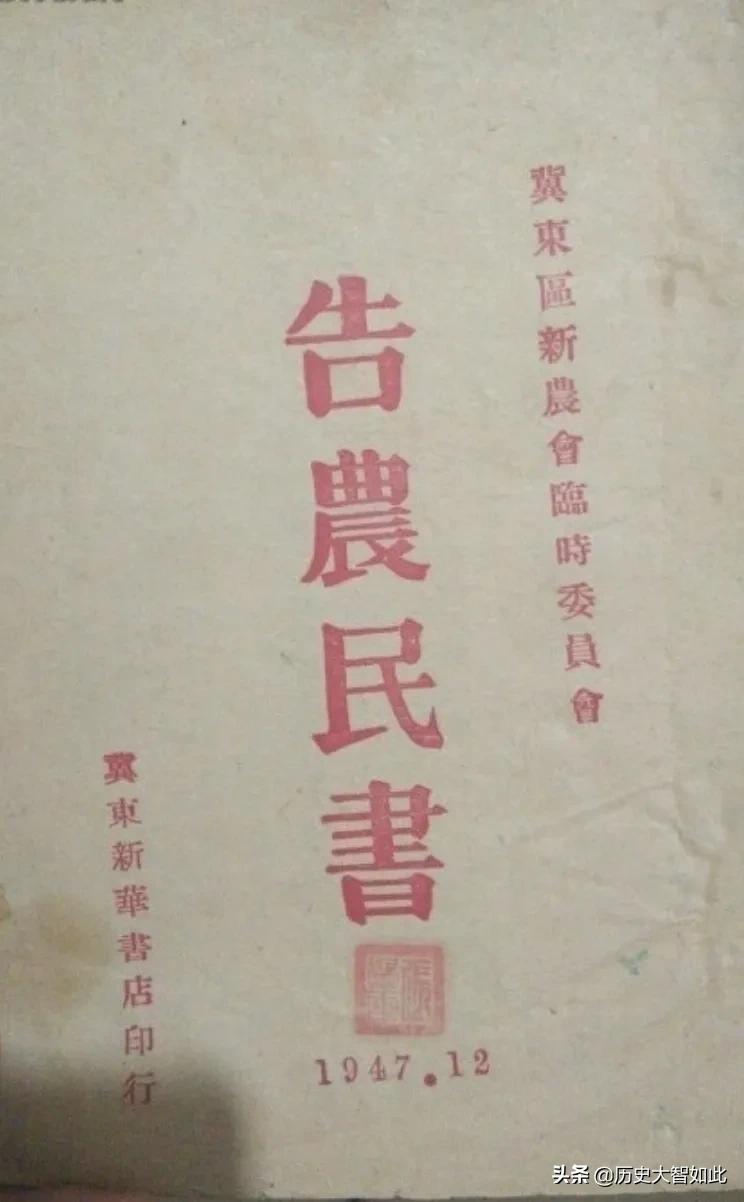 冀東區新農會臨時委員會
告農民書
冀東新華書店印行
1947.12
头条 @历史大智如此